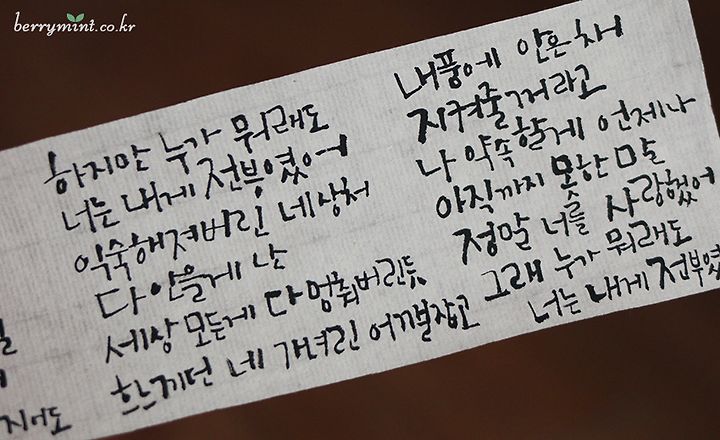 berrymint.co.kr
하지만 누가 뭐래도
너는 내게 전부였어
익숙해져버린 네 상처
다 안을게 난
세상 모든게 다 멈춰버린듯
흐느끼던 네 가녀린 어깰잡고
내품에 안은채
지켜줄꺼라고
나 약속할게 언제나
아직까지 못한 말
정말 너를 사랑했어
그래 누가 뭐래도
너는 내게 전부였